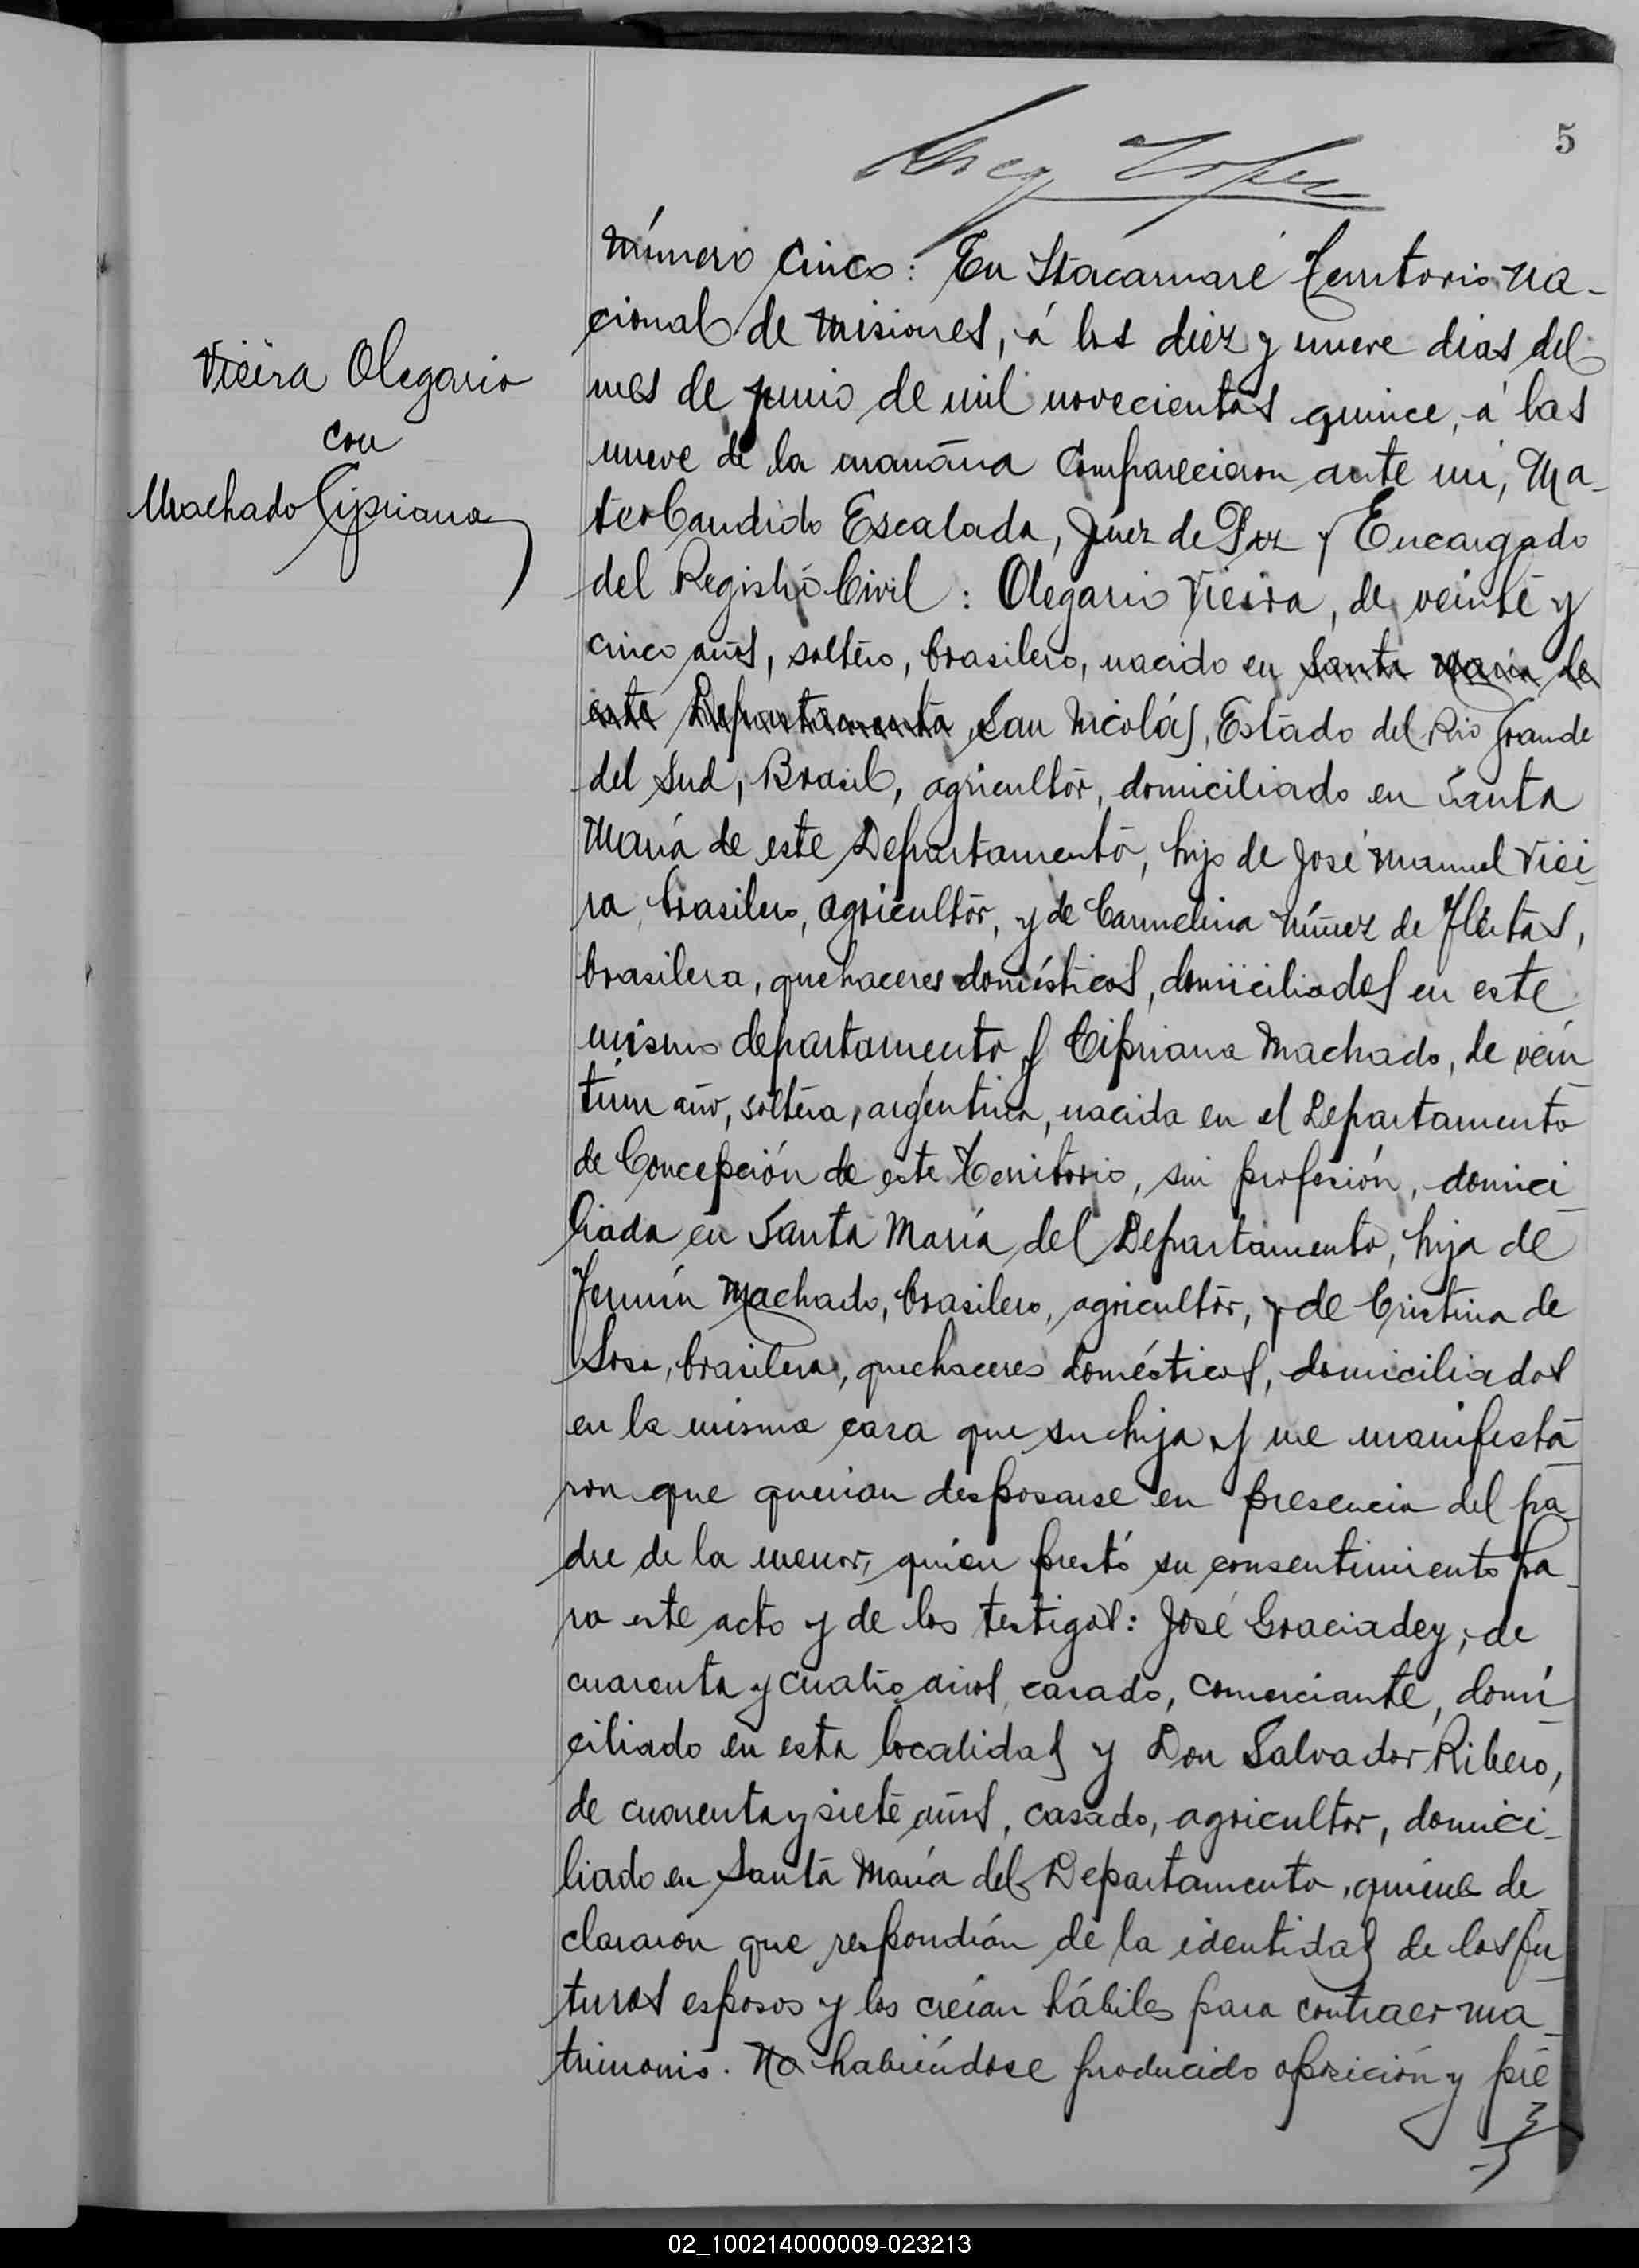 5
Número Cinco: En Itacaruaré Territorio Na-
cional de Misiones, á los diez y nueve dias del
mes de junio de mil novecientos quince, á las
nueve de la mañana comparecieron ante mi, Ma-
teo Candido Escalada, Juez de Paz y Encargado
del Registro Civil: Olegario Vieira, de veinte y
cinco años, soltero, brasilero, nacido en Santa María de
este Departamento, San Nicolás, Estado del Rio Grande
del Sud, Brasil, agricultor, domiciliado en Santa
María de este Departamento, hijo de José Manuel Viei-
ra, brasilero, agricultor, y de Carmelina Núñez de
brasilera, quehaceres domésticos, domiciliados en este
mismo departamento y Cipriana Machado, de vein-
tiun año, soltera, argentina, nacida en el Departamento
de Concepción de este Territorio, sin profesión, domici-
liada en Santa María del Departamento, hija de
Fermín Machado, brasilero, agricultor, y de Cristina de
Sosa, brasilera, quehaceres domésticos, domiciliados
en la misma casa que su hija y me manifesta-
ron que querian desposarse en presencia del pa-
dre de la menor, quien prestó su consentimiento pa-
ra este acto y de los testigos: José Graciadey, de
cuarenta y cuatro años, casado, comerciante, domi-
ciliado en esta localidad y Don Salvador Ribero,
de cuarenta y siete años, casado, agricultor, domici-
liado en Santa María del Departamento, quienes de-
clararon que respondían de la identidad de los fu-
turos esposos y los creían hábiles para contraer ma-
trimonio. No habiéndose producido oposición y pre
Vieira Olegario
con
Machado Cipriana
02_100214000009-023213